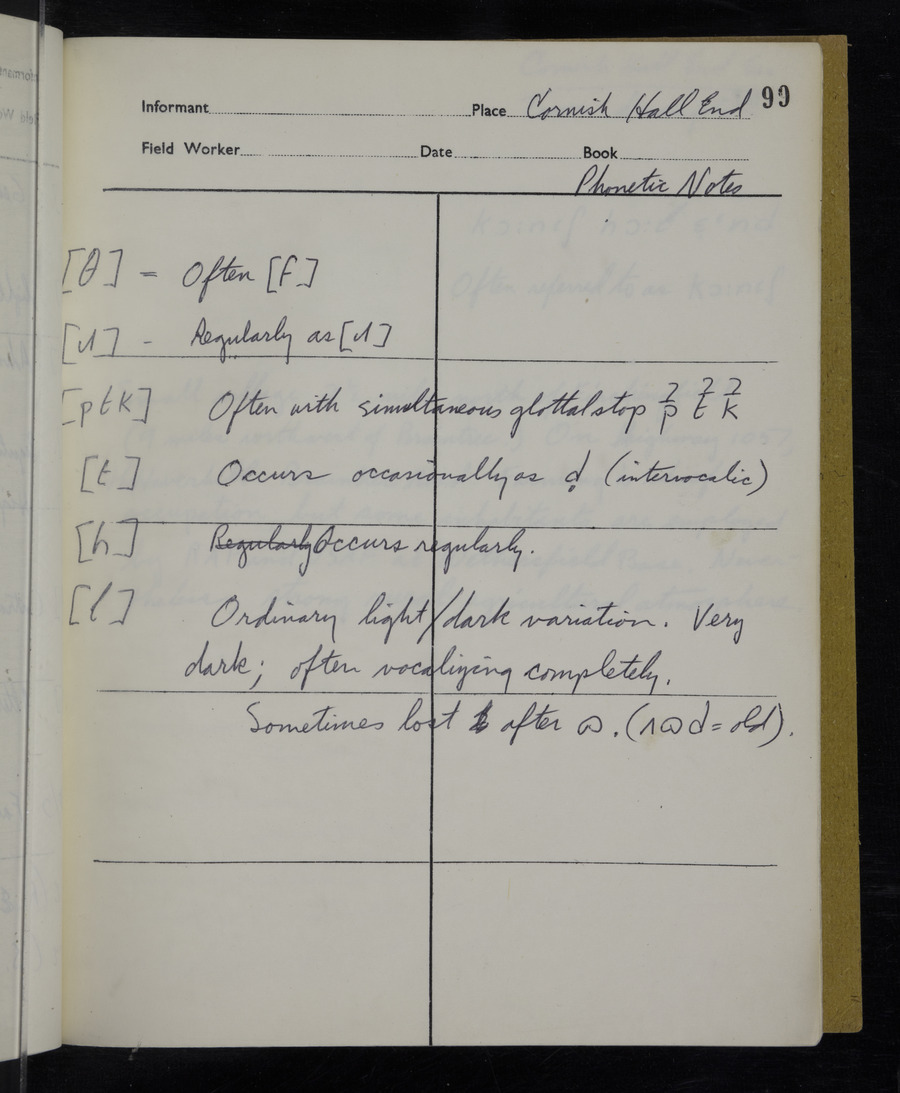 Informant Place Cornish Hall End 99
Field Worker Date Book
Phonetic Notes
[θ] = Often [f]
[ɹ] - Regularly as [ɹ]
[p t k] Often with simultaneous glottal stop p̉ t̉ k̉
[t] Occurs occasionally as d̥ (intervocalic)
[h] Regularly Occurs regularly.
[l] Ordinary light/dark variation. Very
dark; often vocalizing completely.
Sometimes lost after ɷ. (ʌɷd = old).